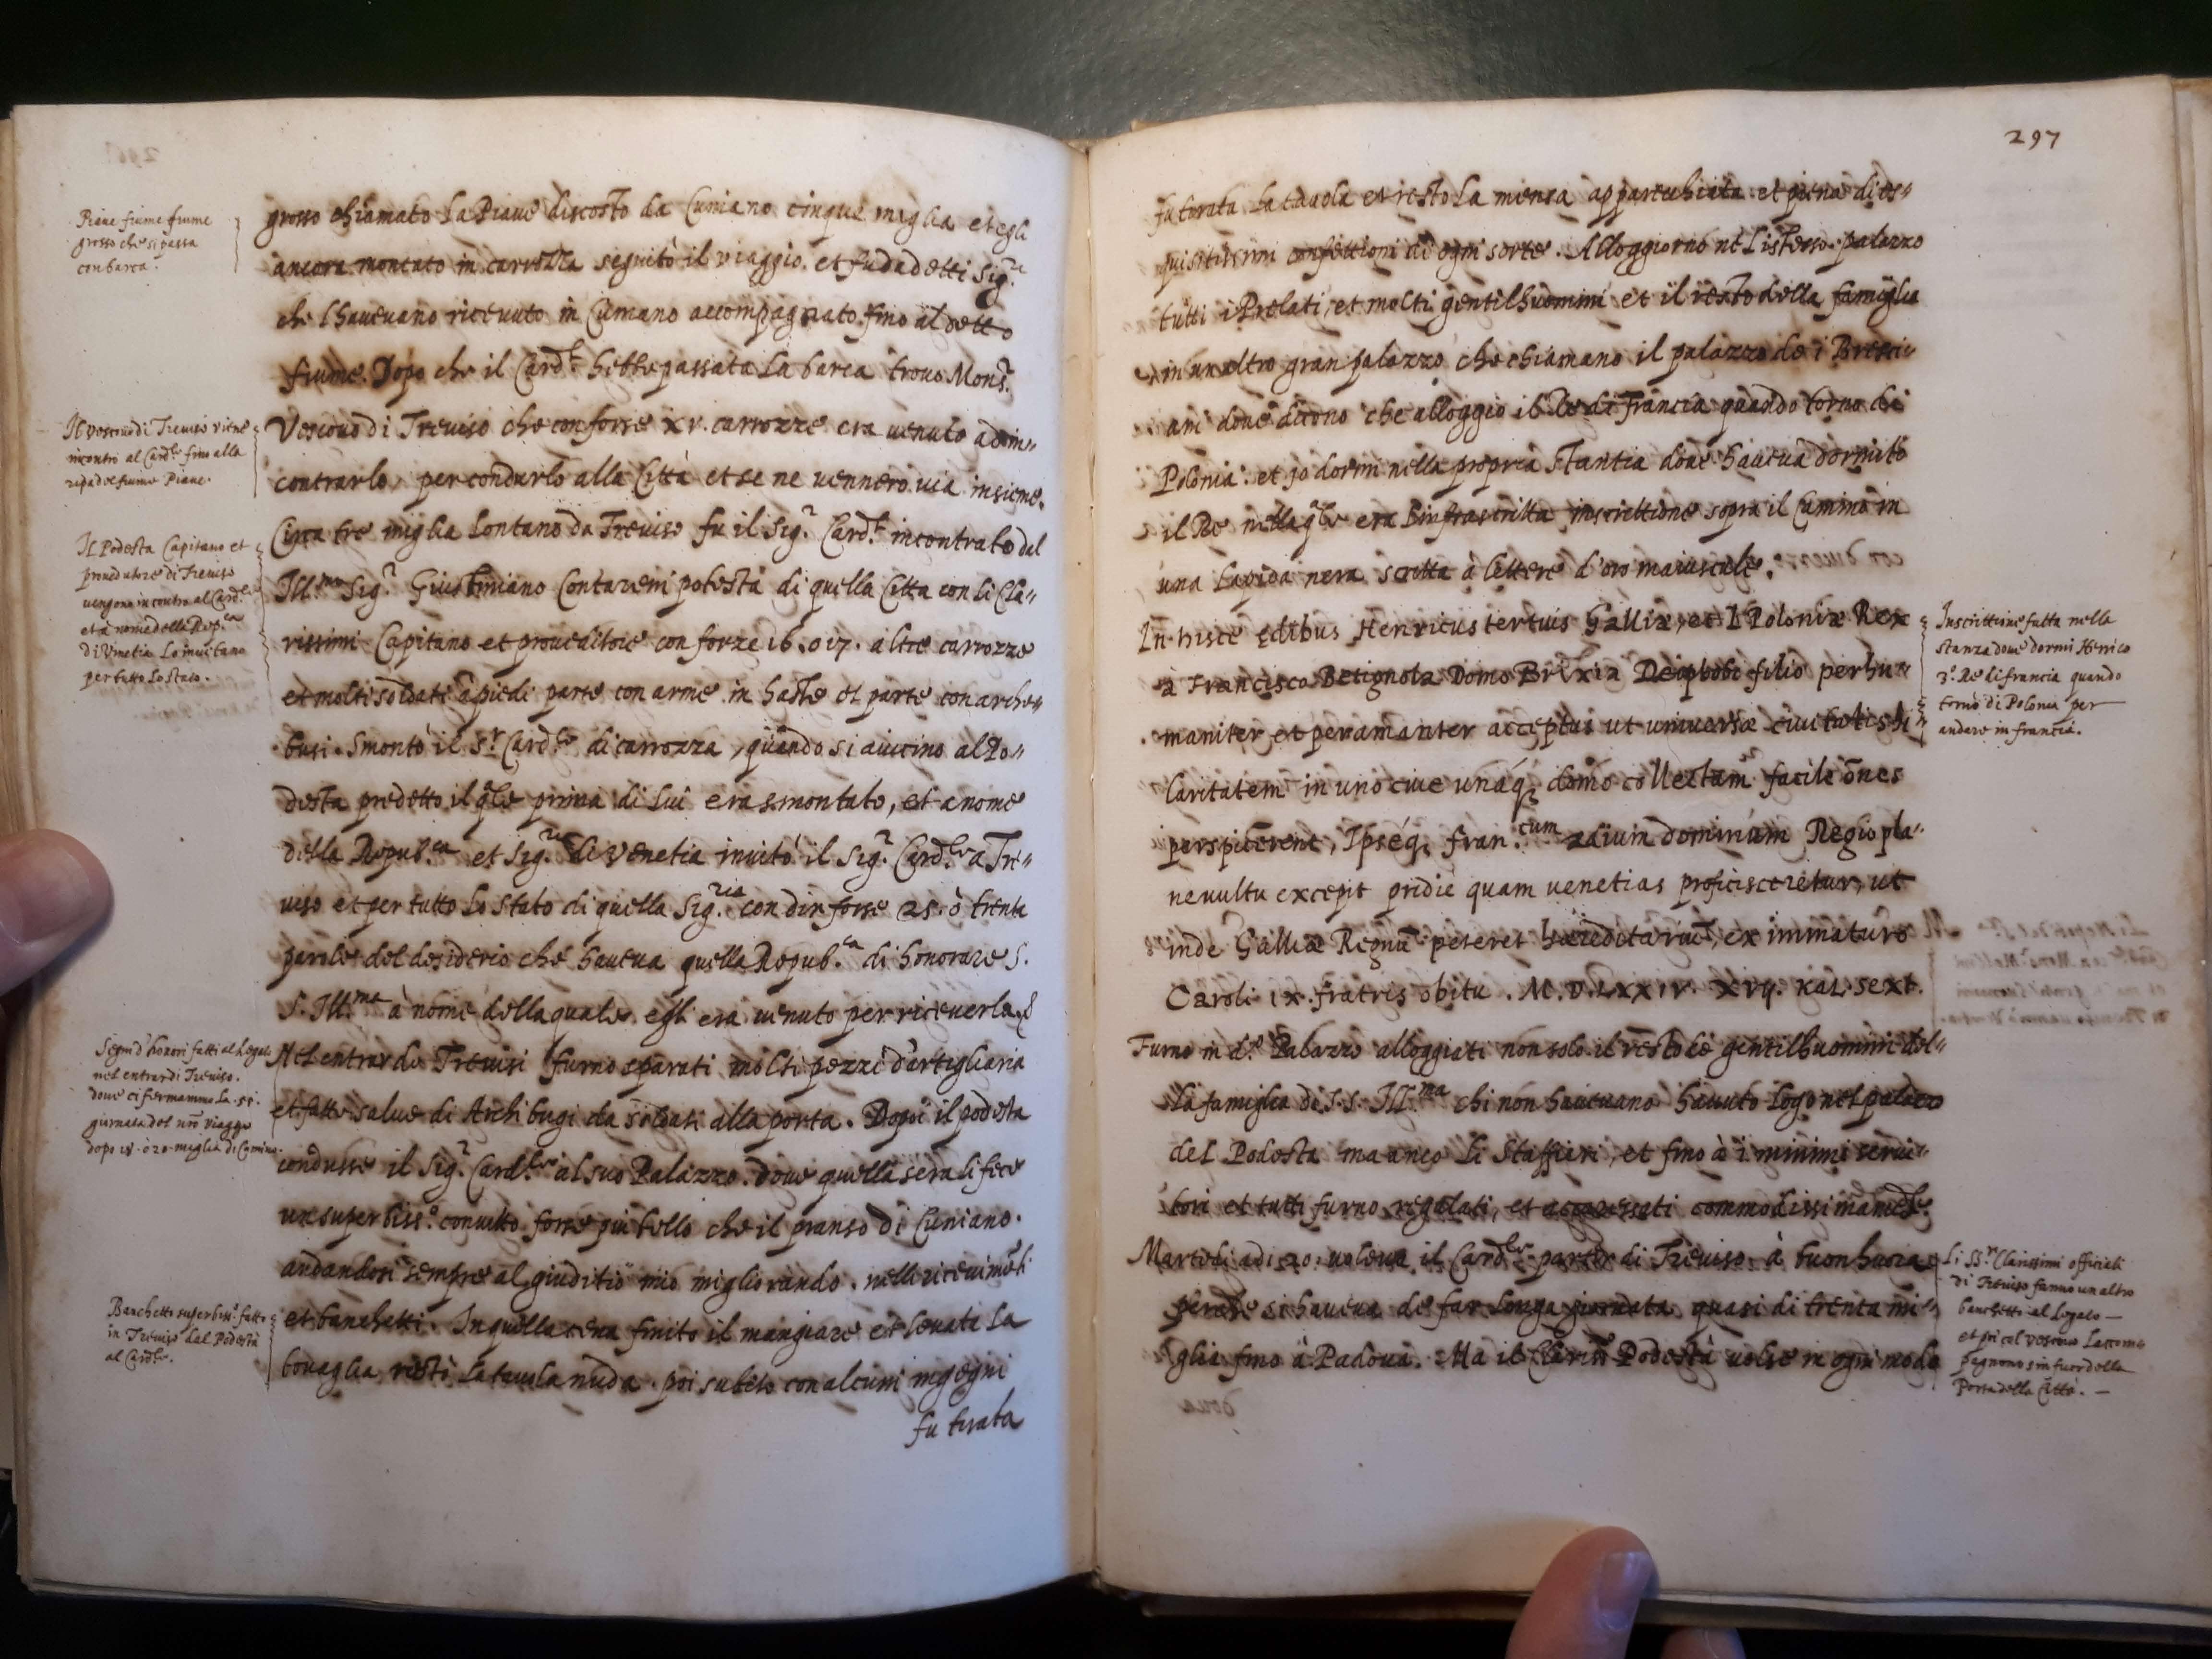 Piave fiume fiume
grosso che si passa
con barca.
grosso chiamato La Piave discosto da Cuniano cinque miglia et egli
ancora montato in carrozza seguitò il viaggio. et fu da detti Sig.ri
che l'haueuano riceuuto in Cuniano accompagnato fino al detto
fiume. Dopo che il Card.le hebbe passata La barca trouo Mons.r
Il vescouo di Treuiso viene
incontro al Card.le fino alla
ripa del fiume Piaue.
Vescouo di Treuiso che con forse xv. carrozze era uenuto ad in-
contrarlo, per condurlo alla Città et se ne uennero uia insieme.
Il Podesta Capitano et
proueditore di Treuiso
uengono incontro al Card.le
et a nome della Rep.ca
di Venetia Lo inuitano
per tutto Lo Stato.
Circa tre miglia Lontano da Treuiso fu il Sig.r Card.le incontrato dal
Ill.mo Sig.r Giustiniano Contareni potestà di quella Citta con li Cla-
rissimi Capitano et proueditore con forze 16. o 17. altre carrozze
et molti soldati à piedi parte con arme in haste et parte con arche-
busi. Smontò il S.r Card.le di carrozza, quando si auicino al Po-
desta predetto il q.le prima di Lui era smontato, et a nome
della Repub.ca et Sig.ria di Venetia inuitò il Sig.r Card.le a Tre-
uiso et per tutto Lo Stato di quella Sig.ria con dir forse 25. ò trenta
parole del desiderio che haueua quella Repub.ca di honorare S.
S. Ill.ma à nome della quale egli era uenuto per riceuerla.
Segni d'honori fatti al Legato
nel entrar di Treuiso.
doue ci fermammo La 51.
giornata del nro viaggio
dopo 18. ò 20. miglia di Camino.
Nel entrar de Treuisi furno sparati molti pezzi d'artigliaria
et fatte salue di Archibugi da soldati alla porta. Dopoi il podesta
condusse il Sig.r Card.le al suo Palazzo. doue quella sera li fece
un superbiss.o conuitto forse piu bello che il pranso di Cuniano.
andandosi sempre al giuditio mio migliorando. nelli riceuimẽti
Banchetto superbiss.o fatto
in Treuiso dal Podestà
al Card.le.
et banchetti. In quella cena finito il mangiare et Leuata La
touaglia restò La tauola nuda. poi subito con alcuni ingegni
fu tirata
297
fu tirata La tauola et restò La mensa apparechiata et piena di es-
quisitissimi confettioni di ogni sorte. Alloggiorno ne L'istesso palazzo
tutti i Prelati, et molti gentilhuomini et il resto della famiglia
in un altro gran palazzo che chiamano il palazzo de i Bresci-
ani doue dicono che alloggio il Re di Francia quando torno di
Polonia. et jo dormi nella propria stantia doue haueua dormito
il Re nella q.le era L'infrascritta inscrittione sopra il Camino in
una Lapida nera scritta à lettere d'oro maiuscule.
Inscrittione fatta nella
stanza doue dormi Henrico
3.o Re di francia quando
tornò di Polonia per
andare in francia.
In hisce ędibus Henricus tertius Galliæ, et I Poloniæ Rex
à Francisco Betignola Domo Brixia Deiphobi filio perhu-
maniter et peramanter acceptus ut uniuersæ ciuitatis hi-
laritatem in uno ciue unaq; domo collectam facile õnes
perspicerent, Ipseq; fran.cum ædium dominum Regio pla-
ne uultu excepit pridie quam uenetias proficisceretur, ut
inde Galliæ Regnũ peteret hæreditariũ, ex immaturo
Caroli ix. fratris obitu. M.D.Lxxiv. xvij. kal. sext.
Furno in d.o Palazzo alloggiati non solo il resto de gentilhuomini del-
La famiglia di S.S. Ill.ma chi non haueuano hauuto Logo nel palazzo
del Podesta ma anco Li Staffieri, et fino à i minimi serui-
tori et tutti furno regalati, et accarezzati commodissimamẽte.
Li SS.ri Clarissimi officiali
di Treuiso fanno un altro
banchetto al Legato
et poi col vescouo L'accom-
pagnono sin fuor della
Porta della Città.
Martedi adi 20. uoleua il Card.le partir di Treuiso à buon hora
perche si haueua de far Longa giornata quasi di trenta mi-
glia fino à Padoua. Ma il Clariss.o Podestà uolse in ogni modo